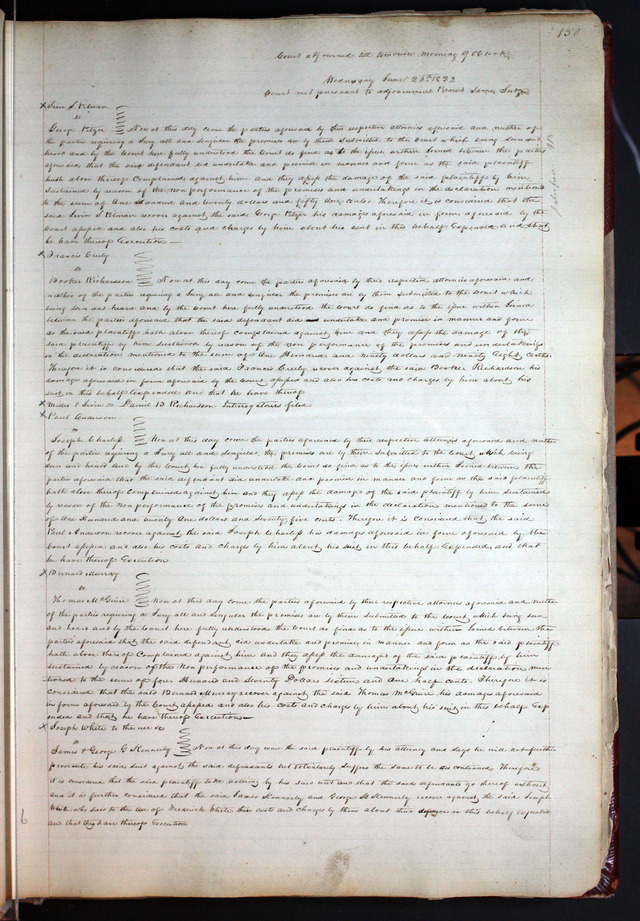 150
Court adjourned till tomorrow morning 9 OClock
Wednesday June 26th 1822
Court met pursuant to adjournment Present James
X Irvin S Pitman
vs
George Pitzer Now at this day come the parties aforesaid by their respective attornies aforesaid and neither of
the parties requiring a Jury all and singular the premises are by them submitted to the Court which being seen and
heard and by the Court here fully understood the Court do find as to the issue within Joined between the parties
aforesaid that the said defendant did undertake and promise in manner and form as the said plaintiff
hath above thereof Complained against him And they assess the damage of the said plaintiff by him
Sustained by reason of the non performance of the promises and undertakings in the declaration mentioned
to the sum of One Hundred and twenty dollars and fifty cents Therefore it is considered that the
said Irvin S Pitman recover against the said George Pitzer his damages aforesaid in form aforesaid by the
Court assessed and also his costs and charges by him about his suit in this behalf Expended and that
he have thereof Execution
X Francis Creely
vs
Booker Richardson Now at this day come the parties aforesaid by their respective attornies aforesaid and
neither of the parties requiring a Jury all and singular the premises are by them submitted to the Court which
being seen and heard and by the Court here fully understood the Court do find as to the issue within Joined
between the parties aforesaid that the said defendant did undertake and promise in manner and form
as the said plaintiff hath above thereof complained against him and they assess the damage of the
said plaintiff by him sustained by reason of the non performance of the promises and undertakings
in the declaration mentioned to the sum of One Hundred and Ninety dollars and Ninety Eight cents
Therefore it is considered that the said Francis Creely recover against the said Booker Richardson his
damages aforesaid in form aforesaid by the Court assessed and also his costs and charges by him about his
suit in this behalf Expended And that he have thereof
X Miller & Irvin vs Daniel D Richardson Interrogatories filed
X Paul Anderson
vs
Joseph Charless Now at this day come the parties aforesaid by their respective attornies aforesaid and neither
of the parties requiring a Jury all and singular the premises are by them submitted to the Court which being
seen and heard And by the Court here fully understood the Court do find as to the issue within Joined between the
parties aforesaid that the said defendant did undertake and promise in manner and form as the said plaintiff
hath above thereof Complained against him And they assess the damages of the said plaintiff by him sustained
by reason of the Non performance of the promises and undertakings in the declaration mentioned to the sum
of One Hundred and twenty One dollars and Seventy five cents Therefore it is considered that the said
Paul Anderson recover against the said Joseph Charless his damages aforesaid in form aforesaid by the
Court assessed and also his costs and charges by him about his suit in this behalf Expended, and that
he have thereof Execution
X Bernard Murray
vs
Thomas McGuire Now at this day come the parties aforesaid by their respective attornies aforesaid and neither
of the parties requiring a Jury all and singular the premises are by them submitted to the Court which being seen
and heard and by the Court here fully understood the Court do find as to the issue within Joined between the
parties aforesaid that the said defendant did undertake and promise in manner and form as the said plaintiff
hath above thereof Complained against him and they assess the damages of the said plaintiff by him
sustained by reason of the Non performance of the promises and undertakings in the declaration men
tioned to the sum of four Hundred and Seventy Dollars sixteen and One half cents. Therefore it is
considered that the said Bernard Murray recover against the said Thomas McGuire his damages aforesaid
in form aforesaid by the Court assessed and also his costs and charges by him about his suit in this behalf Exp
ended and that he have thereof Execution
X Joseph White to the use &c
vs
James & George H Kennerly Now at this day come the said plaintiff by his attorney and says he will not further
prosecute his said suit against the said defendants but voluntarily suffers the same to be discontinued Therefore
it is considered that the said plaintiff take nothing by his said writ and that the said defendants go thereof without
and it is further considered that the said James Kennerly and George H Kennerly recover against the said Joseph
White who sues to the use of Frederick White their costs and charges by them about their defence in this behalf Expended
and that they have thereof Execution
6